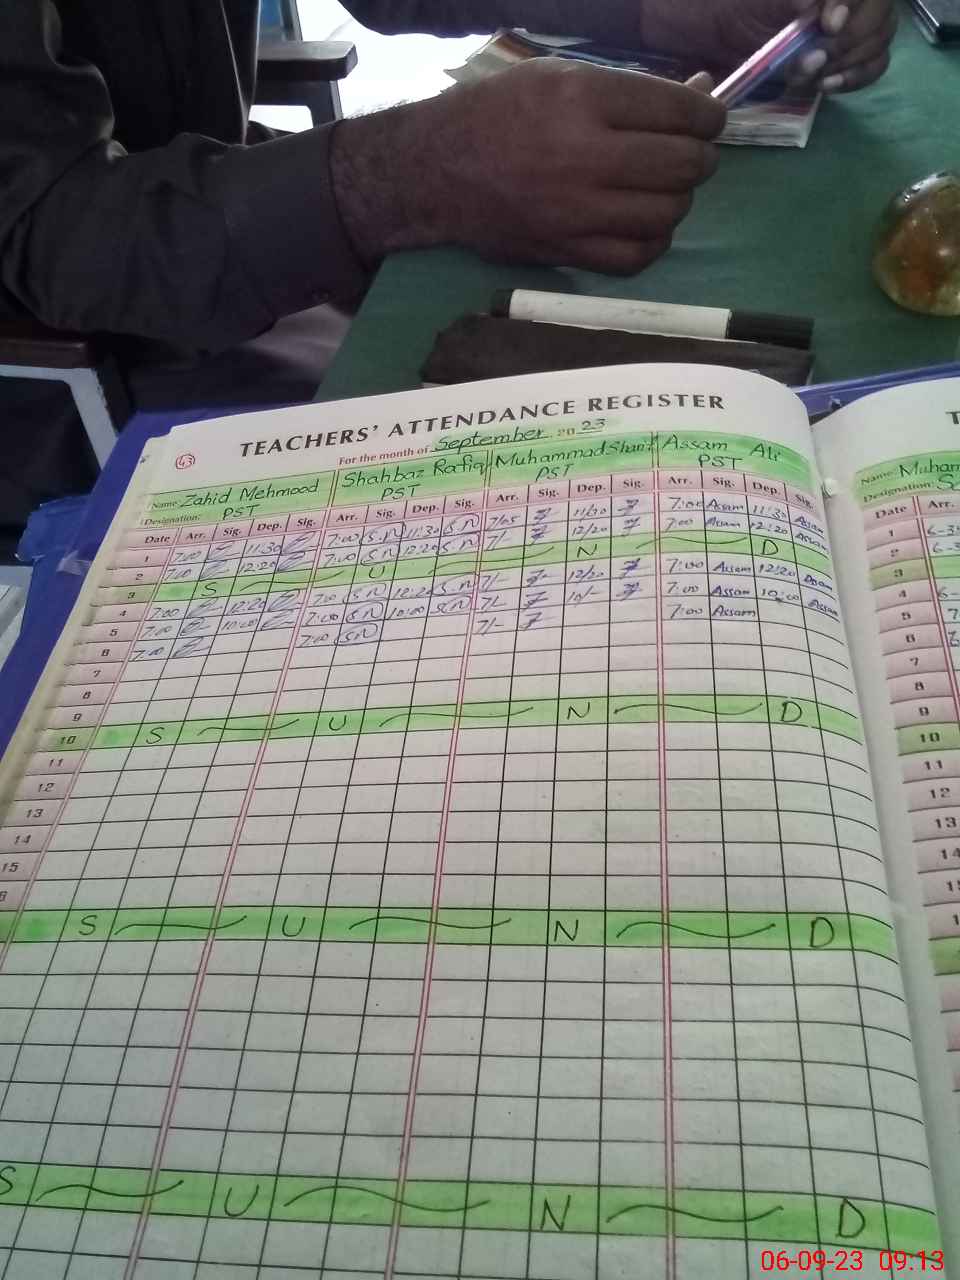 TEACHERS' ATTENDANCE REGISTER
43
For the month of September 2023
Name: Zahid Mehmood Shahbaz Rafiq Muhammad Sharif Assam Ali
Designation: PST PST PST PST
Date Arr. Sig. Dep. Sig. Arr. Sig. Dep. Sig. Arr. Sig. Dep. Sig. Arr. Sig. Dep. Sig.
1 7:00 11:30 7:00 S.N 11:30 S.N 7/05 11/30 7:00 Assam 11:30 Assam
2 7:00 12:20 7:00 S.N 12:20 S.N 7/- 12/20 7:00 Assam 12:20 Assam
3 S U N D
4 7:00 12:20 7:00 S.N 12:20 S.N 7/- 12/20 7:00 Assam 12:20 Assam
5 7:00 10:00 7:00 S.N 10:00 S.N 7/- 10/- 7:00 Assam 10:00 Assam
6 7:00 7:00 S.N 7/- 7:00 Assam
7
8
9
10 S U N D
11
12
13
14
15
6
S U N D
S U N D
T
Name: Muham
Designation: S
Date Arr.
1 6-35
2 6-3
3
4 6-
5 7
6
7
8
9
10
11
12
13
14
1
1
06-09-23 09:13